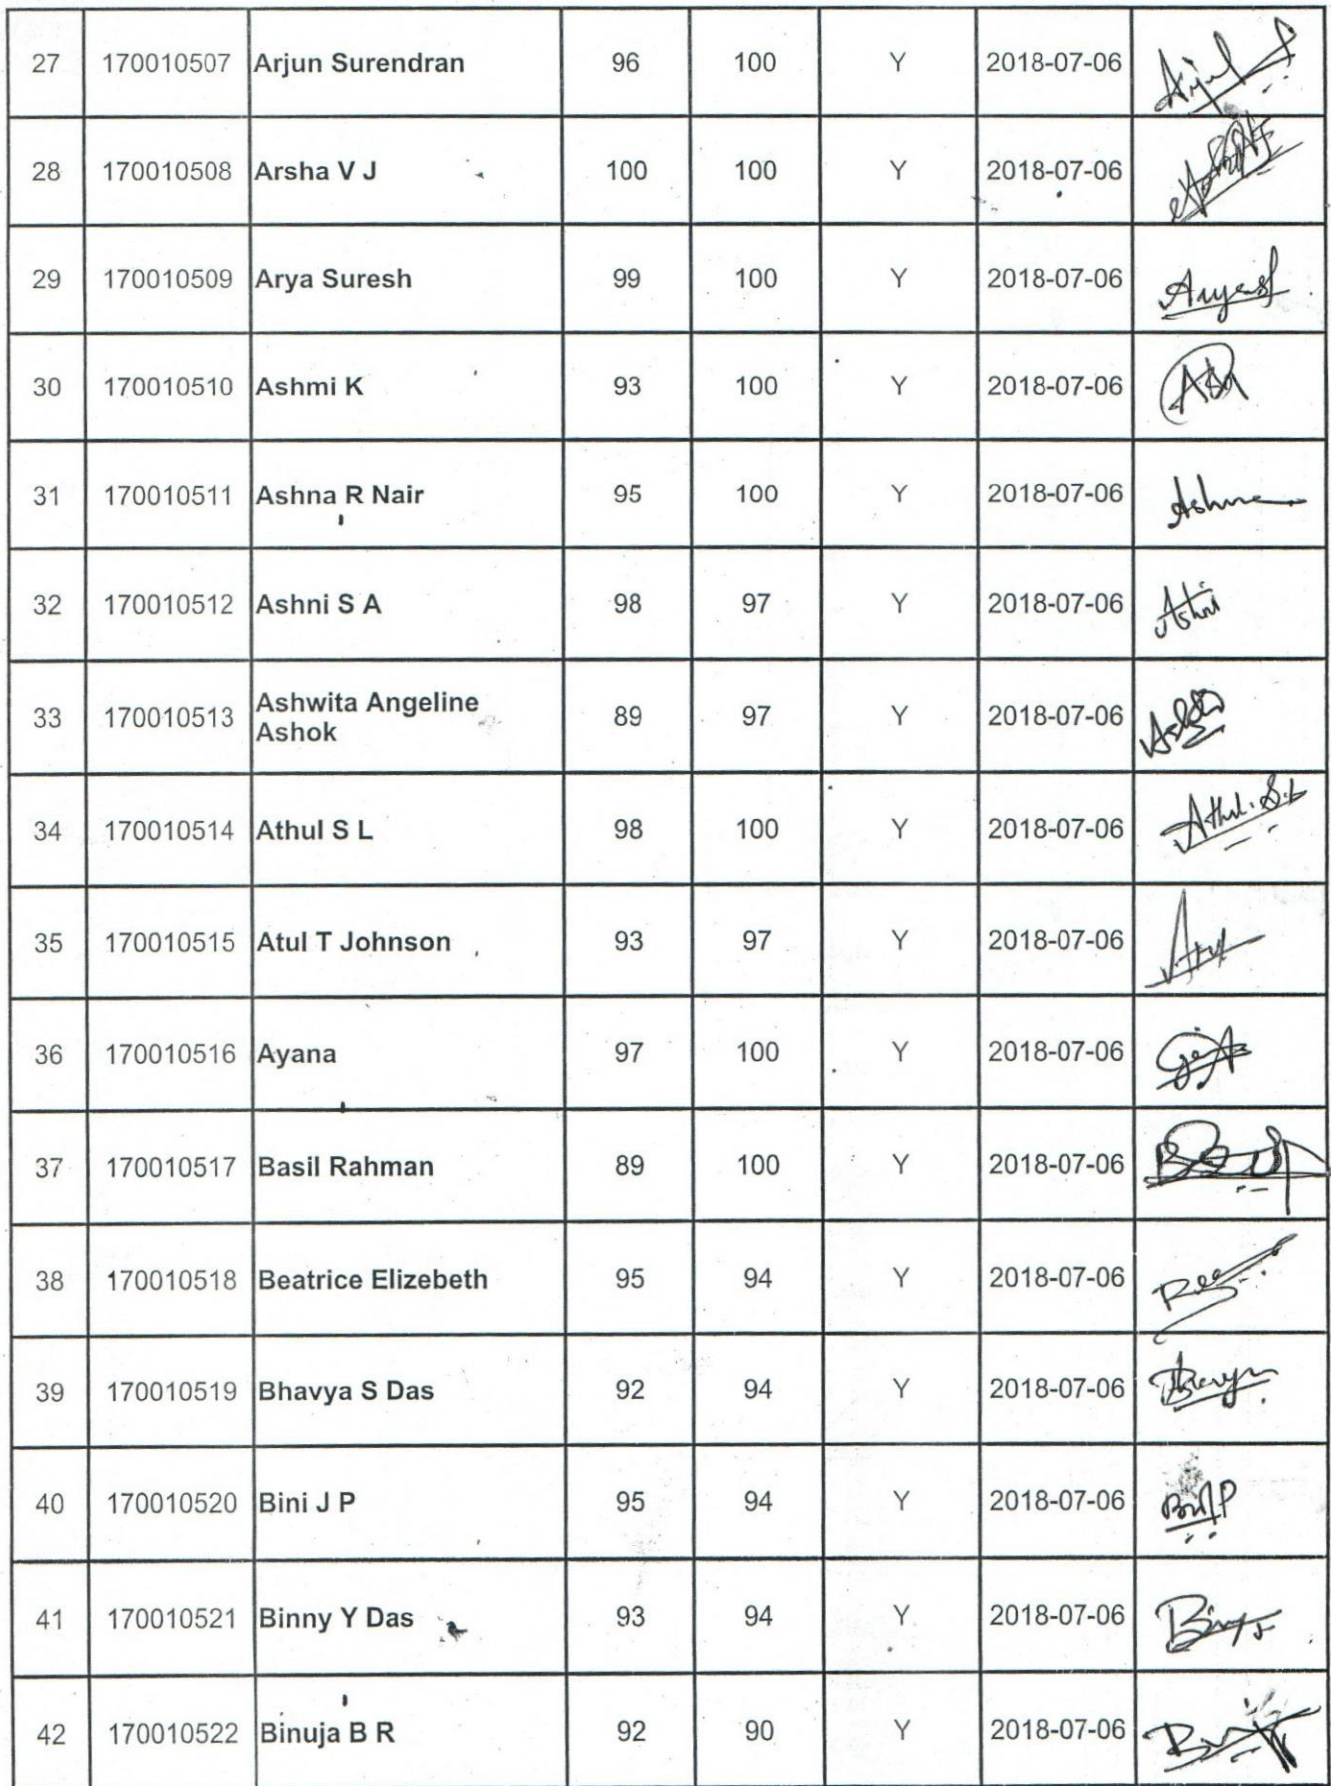 27 170010507 Arjun Surendran 96 100 Y 2018-07-06
28 170010508 Arsha V J 100 100 Y 2018-07-06
29 170010509 Arya Suresh 99 100 Y 2018-07-06
30 170010510 Ashmi K 93 100 Y 2018-07-06
31 170010511 Ashna R Nair 95 100 Y 2018-07-06 Ashna
32 170010512 Ashni S A 98 97 Y 2018-07-06 Ashni
33 170010513 Ashwita Angeline 89 97 Y 2018-07-06
Ashok
34 170010514 Athul S L 98 100 Y 2018-07-06 Athul. S.L
35 170010515 Atul T Johnson 93 97 Y 2018-07-06 Atul
36 170010516 Ayana 97 100 Y 2018-07-06
37 170010517 Basil Rahman 89 100 Y 2018-07-06
38 170010518 Beatrice Elizebeth 95 94 Y 2018-07-06
39 170010519 Bhavya S Das 92 94 Y 2018-07-06
40 170010520 Bini J P 95 94 Y 2018-07-06
41 170010521 Binny Y Das 93 94 Y 2018-07-06
42 170010522 Binuja B R 92 90 Y 2018-07-06